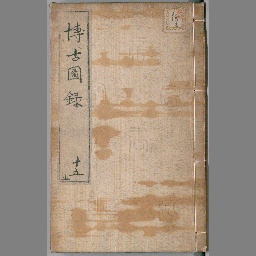 博古圖錄
十五